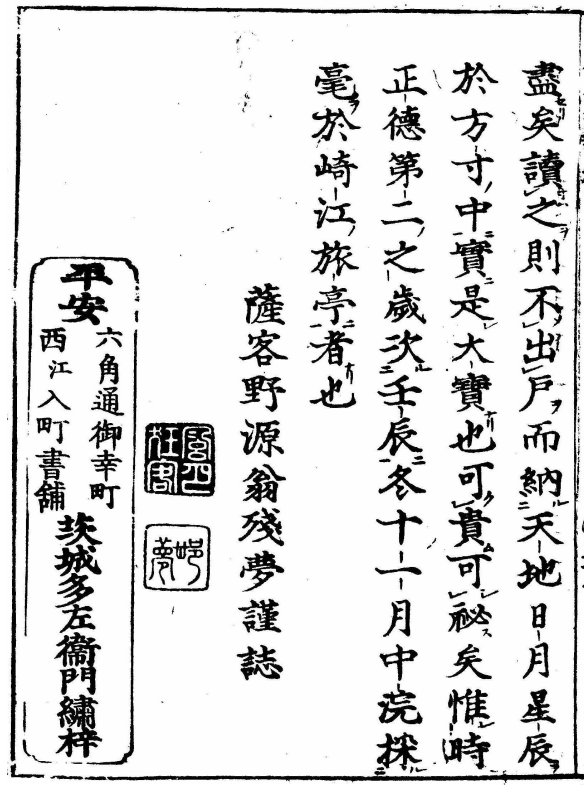 盡矣讀之則不出戸而納天地日月星辰
於方寸中實是大寶也可貴可祕矣惟時
正德第二之歲次壬辰冬十一月中浣採
毫於崎江旅亭者也
薩客野源翁殘夢謹誌
平安
六角通御幸町
西江入町書舗
茨城多左衞門繡梓